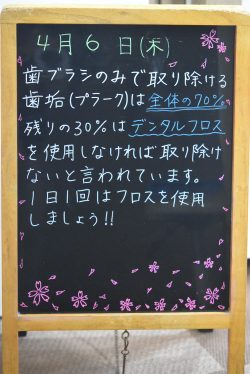 4月6日(木)
歯ブラシのみで取り除ける
歯垢(プラーク)は全体の70%
残りの30%はデンタルフロス
を使用しなければ取り除け
ないと言われています。
1日1回はフロスを使用
しましょう!!